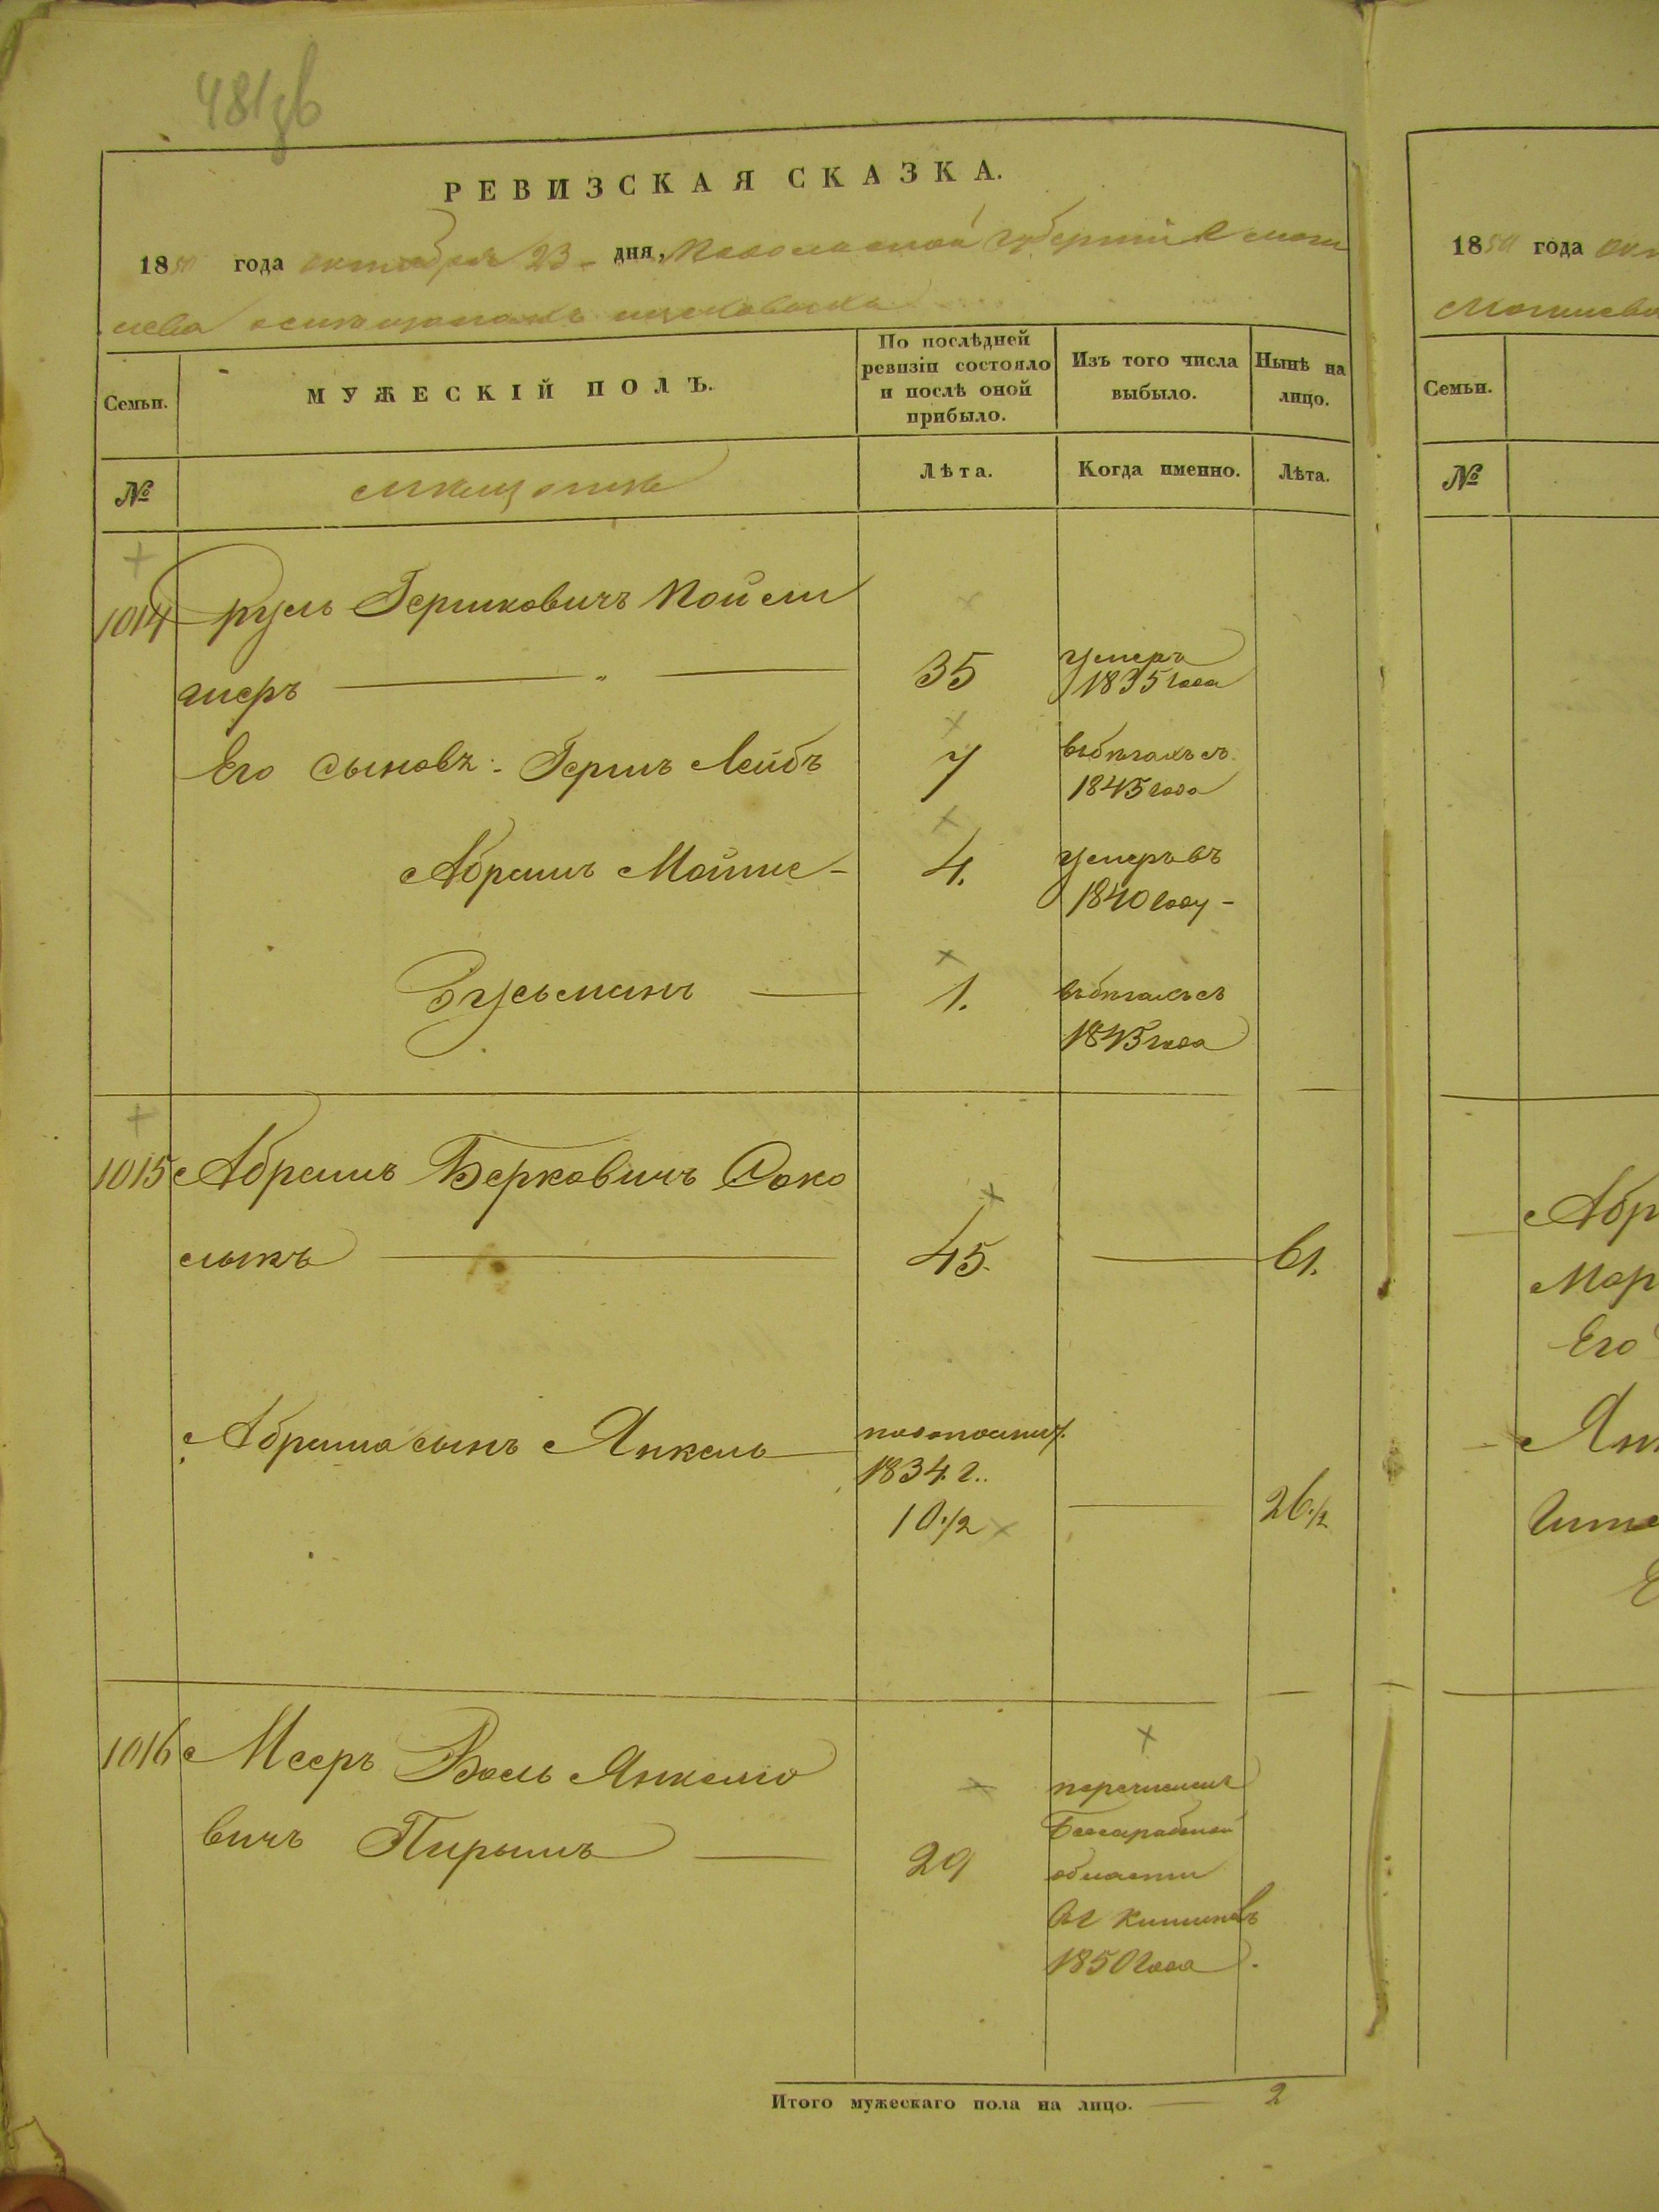 481
РЕВИЗСКАЯ СКАЗКА.
1850 года октября 23 дня, Подольской Губернии
МУЖЕСКІЙ ПОЛЪ.
Семьи.
По послѣдней ревизіи состояло и послѣ оной прибыло.
Изъ того числа выбыло.
Нынѣ на лицо.
№
Лѣта.
Когда именно.
Лѣта.
1014 Сруль Гершковичъ Койсм
35 умеръ
1835 года
Его сыновья: Гершъ Лейбъ 7
1845 года
Абрамъ Мошко 4. умеръ въ
1840 году
Зусьманъ 1.
1845 года
1015 Абрамъ Берковичъ Соко
лыкъ 45. 61.
Абрама сынъ Янкель
1834 г.
10 1/2 26 1/2
1016 Мееръ Волъ Янкелио
вичъ 29
перечисленъ
Бессарабской
области
въ г Кишиневъ
1850 года
Итого мужескаго пола на лицо. 2
1850 года
Семьи.
№
Абр
Мар
Его
Янк